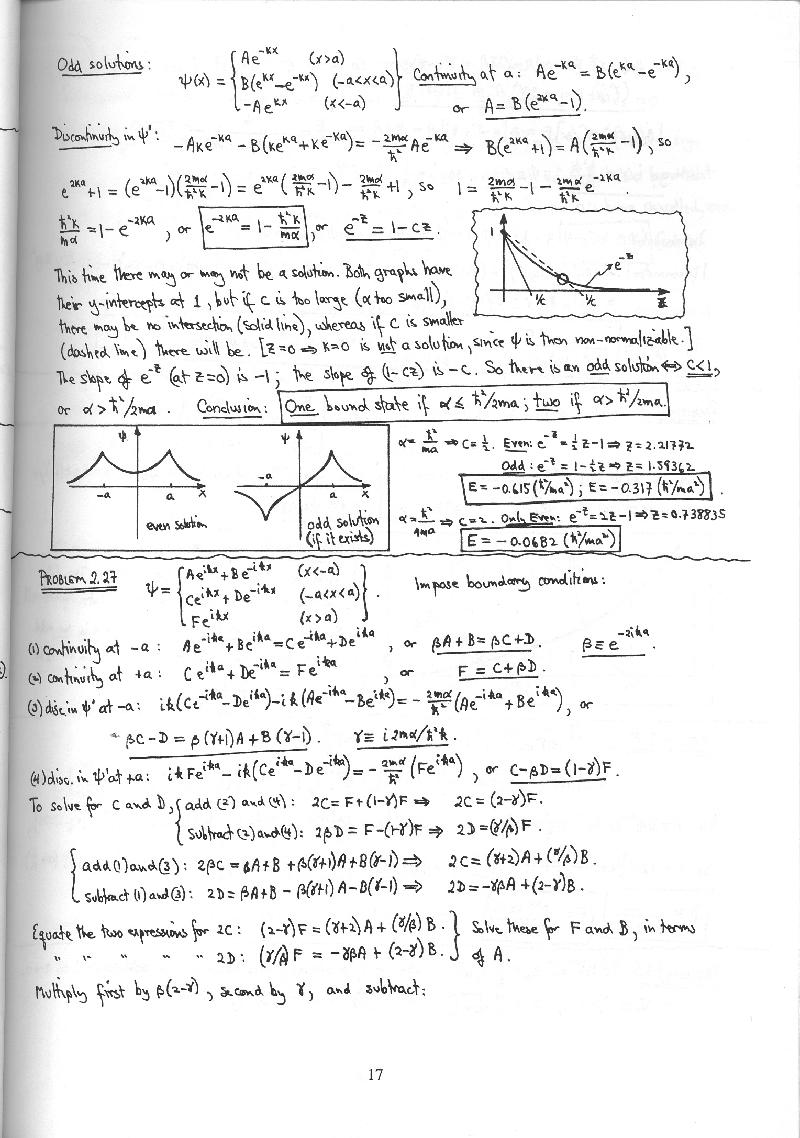 Odd solutions: ψ(x) = { Ae^{-κx} (x>a)
B(e^{κx} - e^{-κx}) (-a<x<a)
-Ae^{κx} (x<-a) } Continuity at a: Ae^{-κa} = B(e^{κa} - e^{-κa}),
or A = B(e^{2κa} - 1).
Discontinuity in ψ': -Aκe^{-κa} - B(κe^{κa} + κe^{-κa}) = -\frac{2mα}{ħ²} Ae^{-κa} ⇒ B(e^{2κa} + 1) = A(\frac{2mα}{ħ²κ} - 1), so
e^{2κa} + 1 = (e^{2κa} - 1)(\frac{2mα}{ħ²κ} - 1) = e^{2κa}(\frac{2mα}{ħ²κ} - 1) - \frac{2mα}{ħ²κ} + 1, so 1 = \frac{2mα}{ħ²κ} - 1 - \frac{2mα}{ħ²κ} e^{-2κa}.
\frac{ħ²κ}{mα} = 1 - e^{-2κa}, or e^{-2κa} = 1 - \frac{ħ²κ}{mα}, or e^{-z} = 1 - cz.
1 e^{-z} 1/c 1/c z
This time there may or may not be a solution. Both graphs have
their y-intercepts at 1, but if c is too large (α too small),
there may be no intersection (solid line), whereas if c is smaller
(dashed line) there will be. [z=0 ⇒ κ=0 is not a solution, since ψ is then non-normalizable.]
The slope of e^{-z} (at z=0) is -1; the slope of (1-cz) is -c. So there is an odd solution ⇔ c<1,
or α > ħ²/2ma. Conclusion: One bound state if α ≤ ħ²/2ma; two if α > ħ²/2ma.
ψ -a a x even solution
ψ -a a x odd solution (if it exists)
α = \frac{ħ²}{ma} ⇒ c = ½. Even: e^{-z} = ½z - 1 ⇒ z = 2.21772
Odd: e^{-z} = 1 - ½z ⇒ z = 1.59362
E = -0.615(ħ²/ma²); E = -0.317(ħ²/ma²).
α = \frac{ħ²}{4ma} ⇒ c = 2. Only Even: e^{-z} = 2z - 1 ⇒ z = 0.738835
E = -0.0682 (ħ²/ma²)
PROBLEM 2.27 ψ = { Ae^{ikx} + Be^{-ikx} (x<-a)
Ce^{ikx} + De^{-ikx} (-a<x<a)
Fe^{ikx} (x>a) }. Impose boundary conditions:
(1) continuity at -a: Ae^{-ika} + Be^{ika} = Ce^{-ika} + De^{ika}, or βA + B = βC + D. β ≡ e^{-2ika}.
(2) continuity at +a: Ce^{ika} + De^{-ika} = Fe^{ika}, or F = C + βD.
(3) disc. in ψ' at -a: ik(Ce^{-ika} - De^{ika}) - ik(Ae^{-ika} - Be^{ika}) = -\frac{2mα}{ħ²}(Ae^{-ika} + Be^{ika}), or
βC - D = β(γ+1)A + B(γ-1). γ ≡ i2mα/ħ²k.
(4) disc. in ψ' at +a: ikFe^{ika} - ik(Ce^{ika} - De^{-ika}) = -\frac{2mα}{ħ²}(Fe^{ika}), or C - βD = (1-γ)F.
To solve for C and D, { add (2) and (4): 2C = F + (1-γ)F ⇒ 2C = (2-γ)F.
subtract (2) and (4): 2βD = F - (1-γ)F ⇒ 2D = (γ/β)F.
{ add (1) and (3): 2βC = βA + B + β(γ+1)A + B(γ-1) ⇒ 2C = (γ+2)A + (γ/β)B.
subtract (1) and (3): 2D = βA + B - β(γ+1)A - B(γ-1) ⇒ 2D = -γβA + (2-γ)B.
Equate the two expressions for 2C: (2-γ)F = (γ+2)A + (γ/β)B. } Solve these for F and B, in terms
" " " " " 2D: (γ/β)F = -γβA + (2-γ)B. } of A.
Multiply first by β(2-γ), second by γ, and subtract:
17